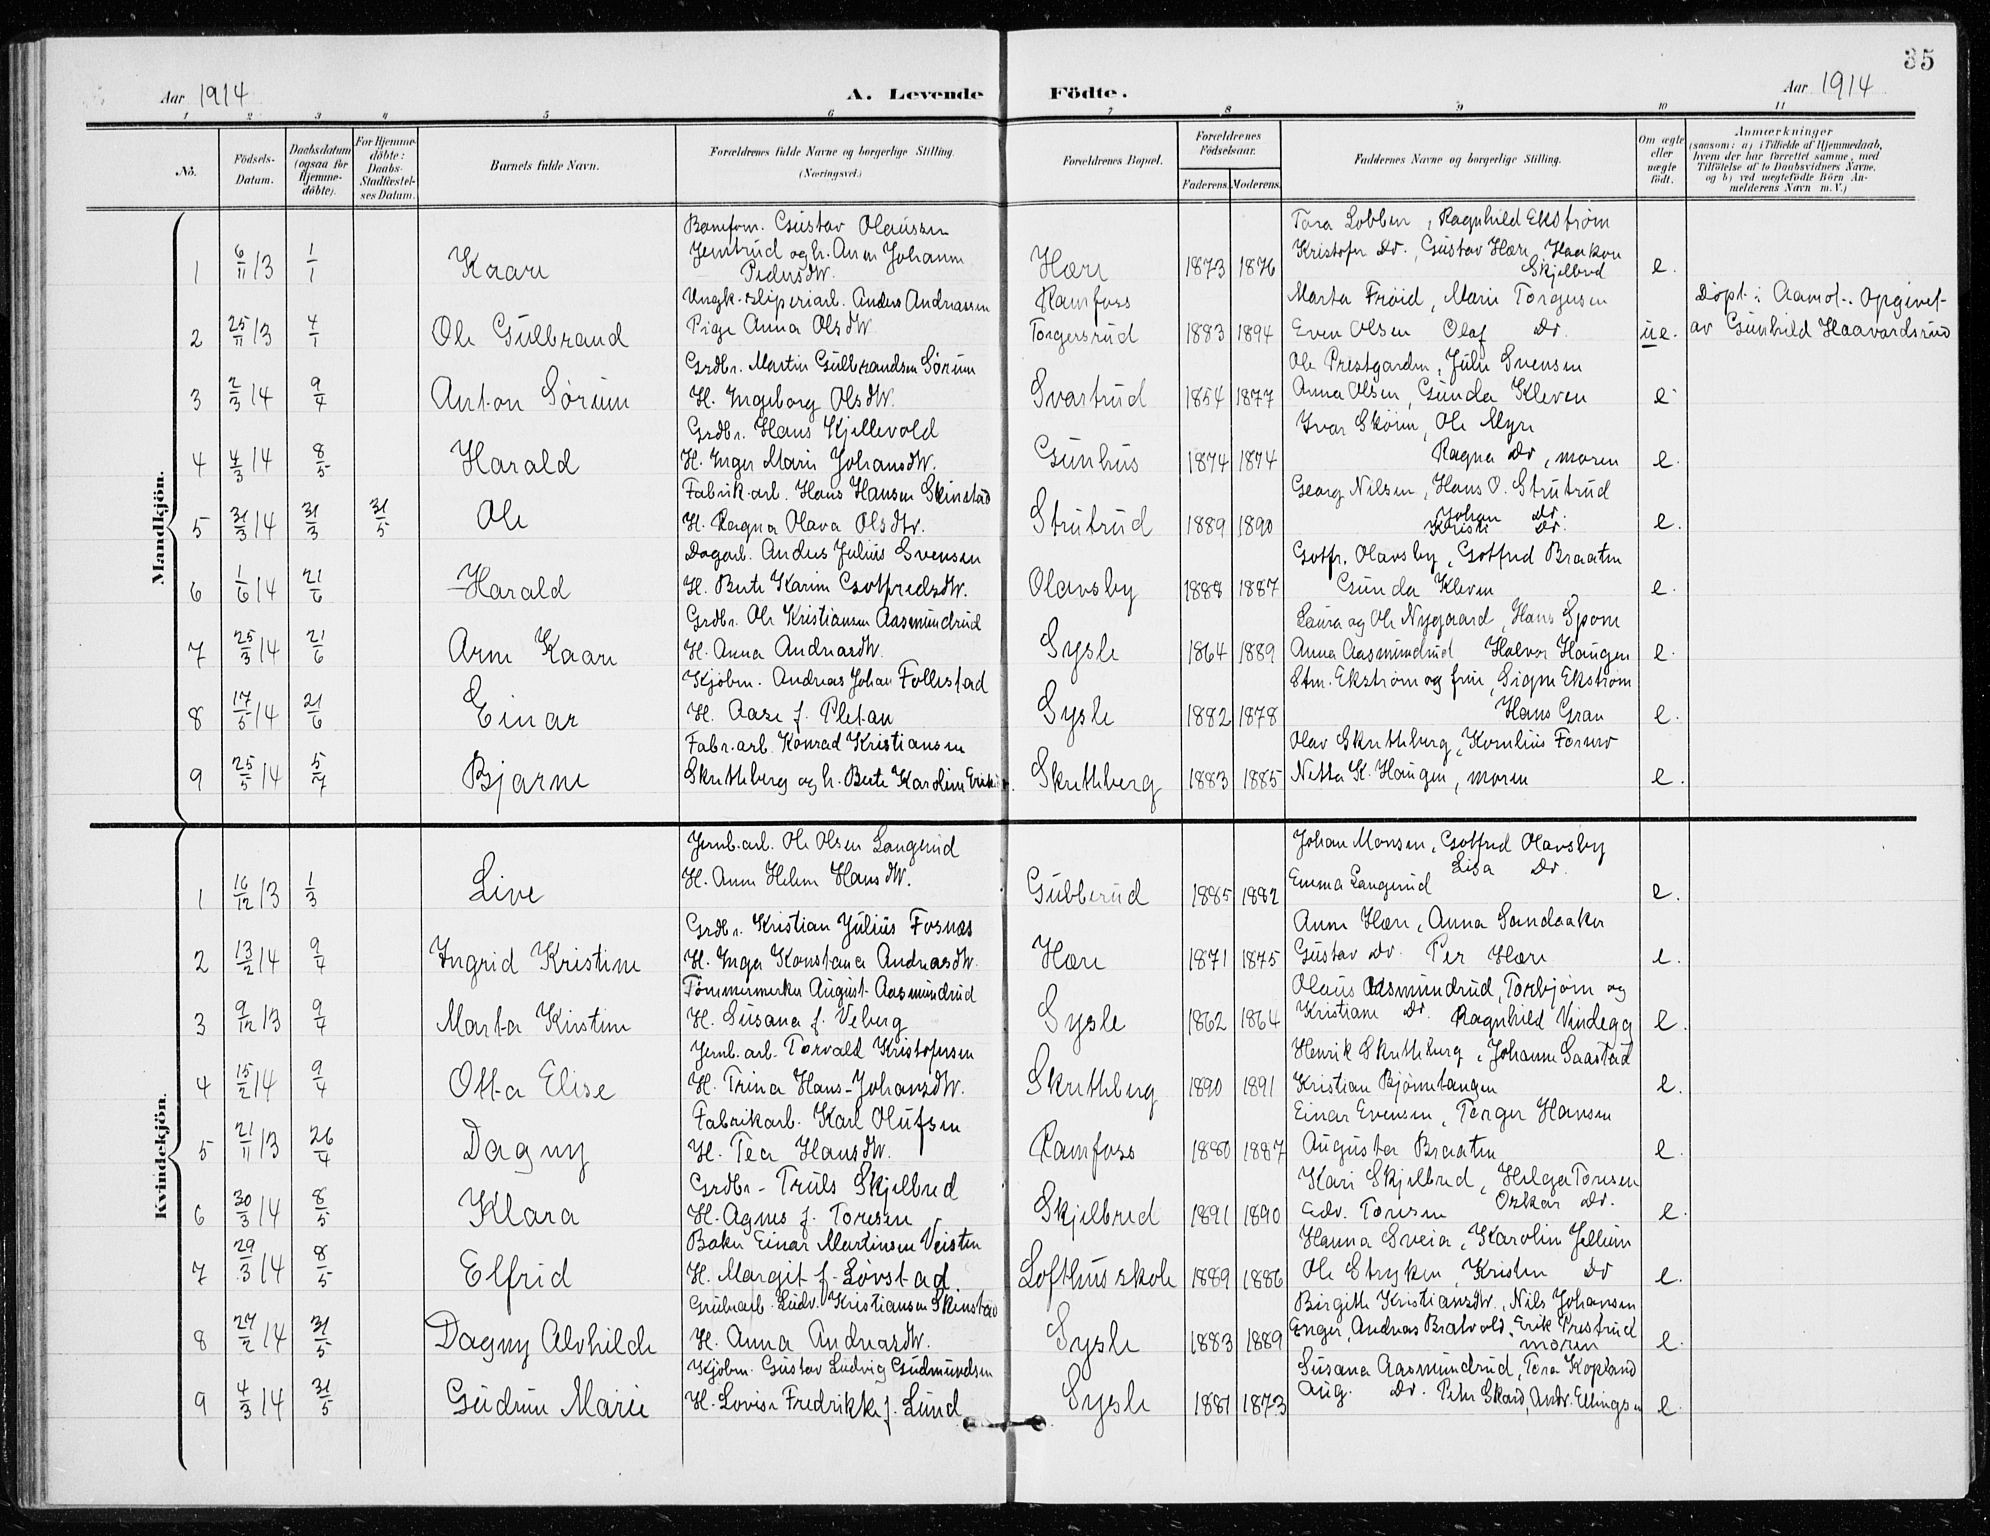 35
Aar 1914 A. Levende Födte. Aar 1914
1 2 3 4 5 6 7 8 9 10 11
No. Födsels-Datum. Daabsdatum (ogsaa for Hjemme-döbte). For Hjemme-döbte: Daabs-Stadfæstel-ses Datum. Barnets fulde Navn. Forældrenes fulde Navne og borgerlige Stilling. (Næringsvei.) Forældrenes Bopæl. Forældrenes Födselsaar. Faderens. Moderens. Faddernes Navne og borgerlige Stilling. Om ægte eller uægte födt. Anmærkninger (saasom: a) i Tilfælde af Hjemmedaab, hvem der har forrettet samme, med Tilföielse af to Daabsvidners Navne, og b) ved uægtefödte Börn An-melderens Navn m. V.)
Mandkjön.
Gustav Olaussen Tora Lobben, Ragnhild Ekstrøm
Jemtrud og h. Anne Johanne Kristofer Do., Gustav Hære, Haakon
1 6/11 13 1/1 Kaare Pedersdtr. Hære 1873 1876 Skjelbred e.
Ungk. sliperiarb. Anders Andreassen Ramfoss Marta Frøid, Marie Torgersen Døpt i Aamot. Opgivet
2 25/11 13 4/1 Ole Gulbrand Pige Anna Olsdtr. Torgersrud 1883 1894 Even Olsen Olaf Do. u.e. av Gunhild Haavardsrud
Grdbr. Martin Gulbrandsen Sørum Ole Prestgarden, Julie Svensen
3 2/3 14 9/4 Anton Sørum H. Ingeborg Olsdtr. Svartrud 1854 1877 Anna Olsen, Gunda Kleven e
Grdbr. Hans Kjellevold Ivar Skørin, Ole Myre
4 4/3 14 8/5 Harald H. Inger Marie Johansdtr. Gunhus 1874 1874 Ragna Do, moren e.
Fabrik.arb. Hans Hansen Skinstad Georg Nilsen, Hans O. Strutrud
Johan Do.
5 31/3 14 31/3 31/5 Ole H. Ragna Olava Olsdtr. Strutrud 1889 1890 Kristi Do. e.
Dagarb. Anders Julius Svensen Gotfr. Olavsby, Gotfred Braaten
6 1/6 14 21/6 Harald H. Berte Karine Gotfredsdtr. Olavsby 1888 1887 Gunda Kleven e.
Grdbr. Ole Kristiansen Aasmundrud Laura og Ole Nygaard, Hans Spone
7 25/3 14 21/6 Arne Kaare H. Anna Andreasdtr. Sysle 1864 1889 Anna Aasmundrud Halvor Haugen e.
Kjøbm. Andreas Johan Follestad Stm. Ekstrøm og frue, Signe Ekstrøm
8 17/5 14 21/6 Einar H. Aase f. Pletan Sysle 1882 1878 Hans Gran e.
Fabr.arb. Konrad Kristiansen Olav Skretteberg, Kornelius
9 25/5 14 5/7 Bjarne Skretteberg og h. Berte Karoline Skretteberg 1883 1885 Netta K. Haugen, moren e.
Kvindekjön.
Jernb.arb. Ole Olsen Langerud Johan Monsen, Gotfred Olavsby
H. Anne Helene Hansdtr. Lisa Do.
1 16/12 13 1/3 Live Gubberud 1885 1882 Emma Langerud e.
Grdbr. Kristian Julius Fosnæs Anne Hære, Anna Sandaaker
2 13/2 14 9/4 Ingrid Kristine H. Inga Konstanse Andreasdtr. Hære 1871 1875 Gustav Do. Per Hære e.
Tømmermerker August Aasmundrud Olaus Aasmundrud, Torbjørn og
3 9/12 13 9/4 Marta Kirstine H. Susana f. Veberg Sysle 1862 1864 Kristiane Do. Ragnhild Vindegg e.
Jernb.arb. Torvald Kristofersen Henrik Skretteberg, Johanne Saastad
4 15/2 14 9/4 Otta Elise H. Trina Hans-Johansdtr. Skretteberg 1890 1891 Kristian Bjørnetangen e.
Fabrikarb. Karl Olufsen Einar Evensen, Torger Hansen
5 21/11 13 26/4 Dagny H. Tea Hansdtr. Ramfoss 1880 1887 Augusta Braaten e.
Grdbr. Truls Skjelbred Kari Skjelbred, Helga Toresen
6 30/3 14 8/5 Klara H. Agnes f. Toresen Skjelbred 1891 1890 Edv. Toresen Oskar Do. e.
Baker Einar Martinsen Veisten Hanna Sveia, Karolin Jellum
7 29/3 14 8/5 Elfrid H. Margit f. Løvstad. Lofthus skole 1889 1886 Ole Stryken, Kristen Do e.
Grubearb. Ludv. Kristiansen Skinstad Birgithe Kristiansdtr., Nils Johansen
8 24/2 14 31/5 Dagny Alvhilde H. Anna Andreasdtr. Sysle 1883 1889 Enger, Andreas Bratvold, Erik Prestrud moren e.
Kjøbm. Gustav Ludvig Gudmundsen Susana Aasmundrud, Tora Kopland
9 4/3 14 31/5 Gudrun Marie H. Lovise Fredrikke f. Lund Sysle 1881 1873 Aug. Do. Peter Skard, Andr. Ellingsen e.